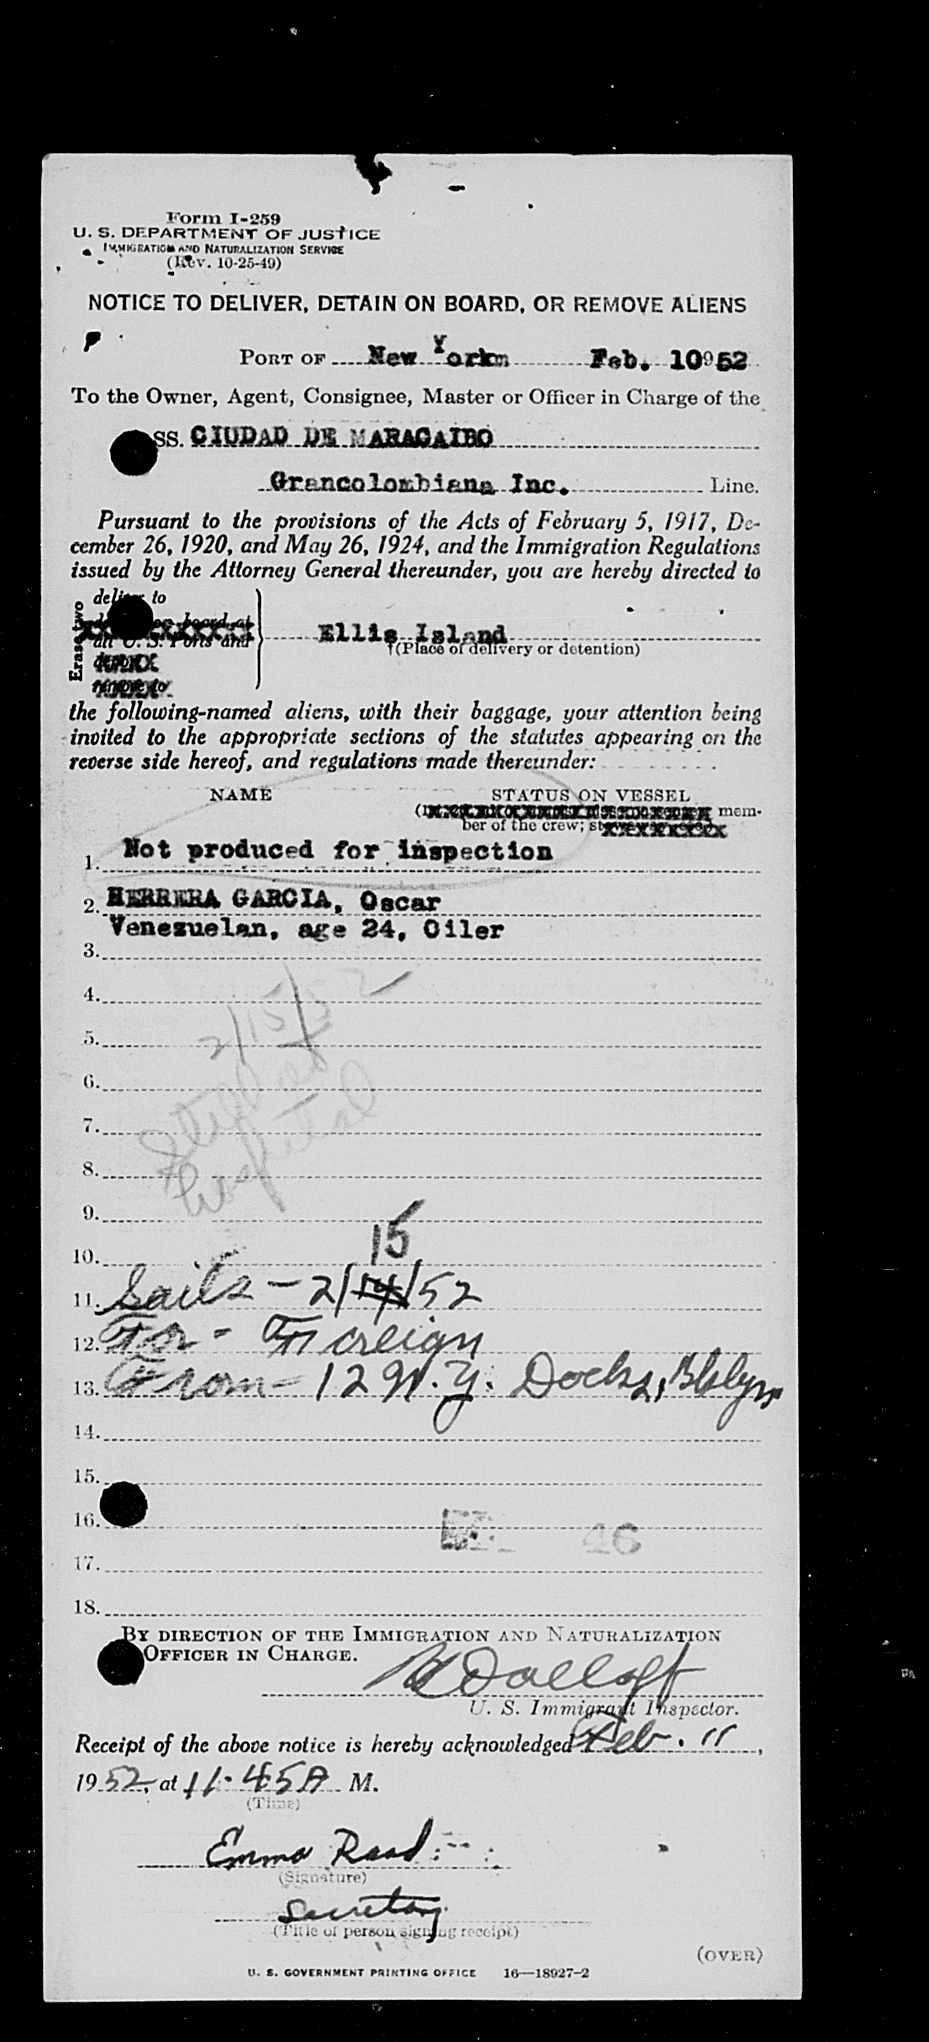 Form I-259
U. S. DEPARTMENT OF JUSTICE
IMMIGRATION AND NATURALIZATION SERVICE
(Rev. 10-25-49)
NOTICE TO DELIVER, DETAIN ON BOARD, OR REMOVE ALIENS
PORT OF New Yorkm Feb. 10 952
To the Owner, Agent, Consignee, Master or Officer in Charge of the
SS. CIUDAD DE MARACAIBO
Grancolombiana Inc. Line.
Pursuant to the provisions of the Acts of February 5, 1917, De-
cember 26, 1920, and May 26, 1924, and the Immigration Regulations
issued by the Attorney General thereunder, you are hereby directed to
Erase two
deliver to
on board at
all U. S. Ports and
remove to
Ellis Island
(Place of delivery or detention)
the following-named aliens, with their baggage, your attention being
invited to the appropriate sections of the statutes appearing on the
reverse side hereof, and regulations made thereunder:
NAME STATUS ON VESSEL
mem-
ber of the crew;
1. Not produced for inspection
2. HERRERA GARCIA, Oscar
Venezuelan, age 24, Oiler
3.
4.
2/15/52
5.
6.
Still in
7.
hospital
8.
9.
15
10.
11. Sails - 2/14/52
12. For - Foreign
13. From - 12 N.Y. Docks, Bklyn
14.
15.
16. 46
17.
18.
BY DIRECTION OF THE IMMIGRATION AND NATURALIZATION
OFFICER IN CHARGE.
U. S. Immigrant Inspector.
Receipt of the above notice is hereby acknowledged Feb. 11,
1952, at 11.45A M.
(Time)
Emma Raad
(Signature)
Secretary
(Title of person signing receipt)
(OVER)
U. S. GOVERNMENT PRINTING OFFICE 16—18927-2